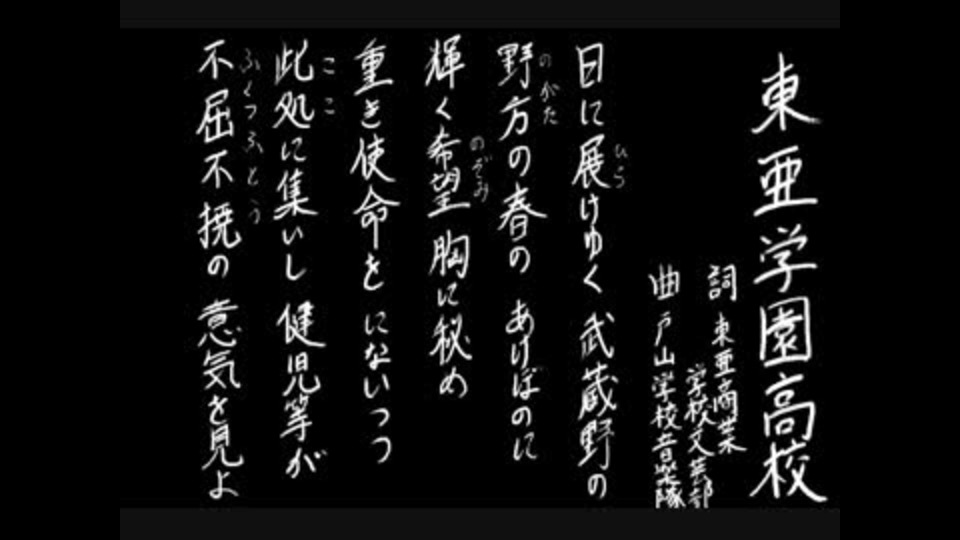 東亜学園高校
詞 東亜商業
学校文芸部
曲 戸山学校音楽隊
日に展けゆく 武蔵野の
ひら
野方の春の あけぼのに
のがた
輝く希望 胸に秘め
のぞみ
重き使命を にないつつ
此処に集いし 健児等が
ここ
不屈不撓の 意気を見よ
ふくつふとう